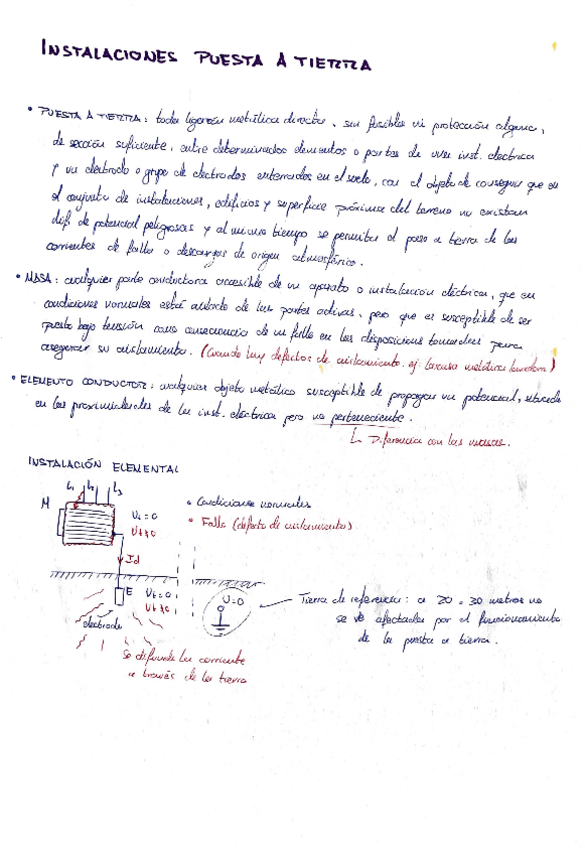 INSTALACIONES PUESTA A TIERRA
• PUESTA A TIERRA: toda ligazón metálica directa, sin fusibles ni protección alguna,
de sección suficiente, entre determinados elementos o partes de una inst. eléctrica
y un electrodo o grupo de electrodos enterrados en el suelo, con el objeto de conseguir que en
el conjunto de instalaciones, edificios y superficie próxima del terreno no existan
difs de potencial peligrosas y al mismo tiempo se permita el paso a tierra de las
corrientes de falta o descargas de origen atmosférico.
• MASA: cualquier parte conductora accesible de un aparato o instalación eléctrica, que en
condiciones normales está aislada de las partes activas, pero que es susceptible de ser
puesta bajo tensión como consecuencia de un fallo en las disposiciones tomadas para
asegurar su aislamiento. (Cuando hay defectos de aislamiento. ej: carcasa metálica lavadora)
• ELEMENTO CONDUCTOR: cualquier objeto metálico susceptible de propagar un potencial, situado
en las proximidades de la inst. eléctrica pero no perteneciente.
↳ Diferencia con las masas.
INSTALACIÓN ELEMENTAL
L1 L2 L3
M
• Condiciones normales
U_t = 0
• Falla (defecto de aislamiento)
U_t ≠ 0
Id
E U_t = 0
U_t ≠ 0
electrodo
U=0
Tierra de referencia: a 20 o 30 metros no
se ve afectada por el funcionamiento
de la puesta a tierra.
Se difunde la corriente
a través de la tierra